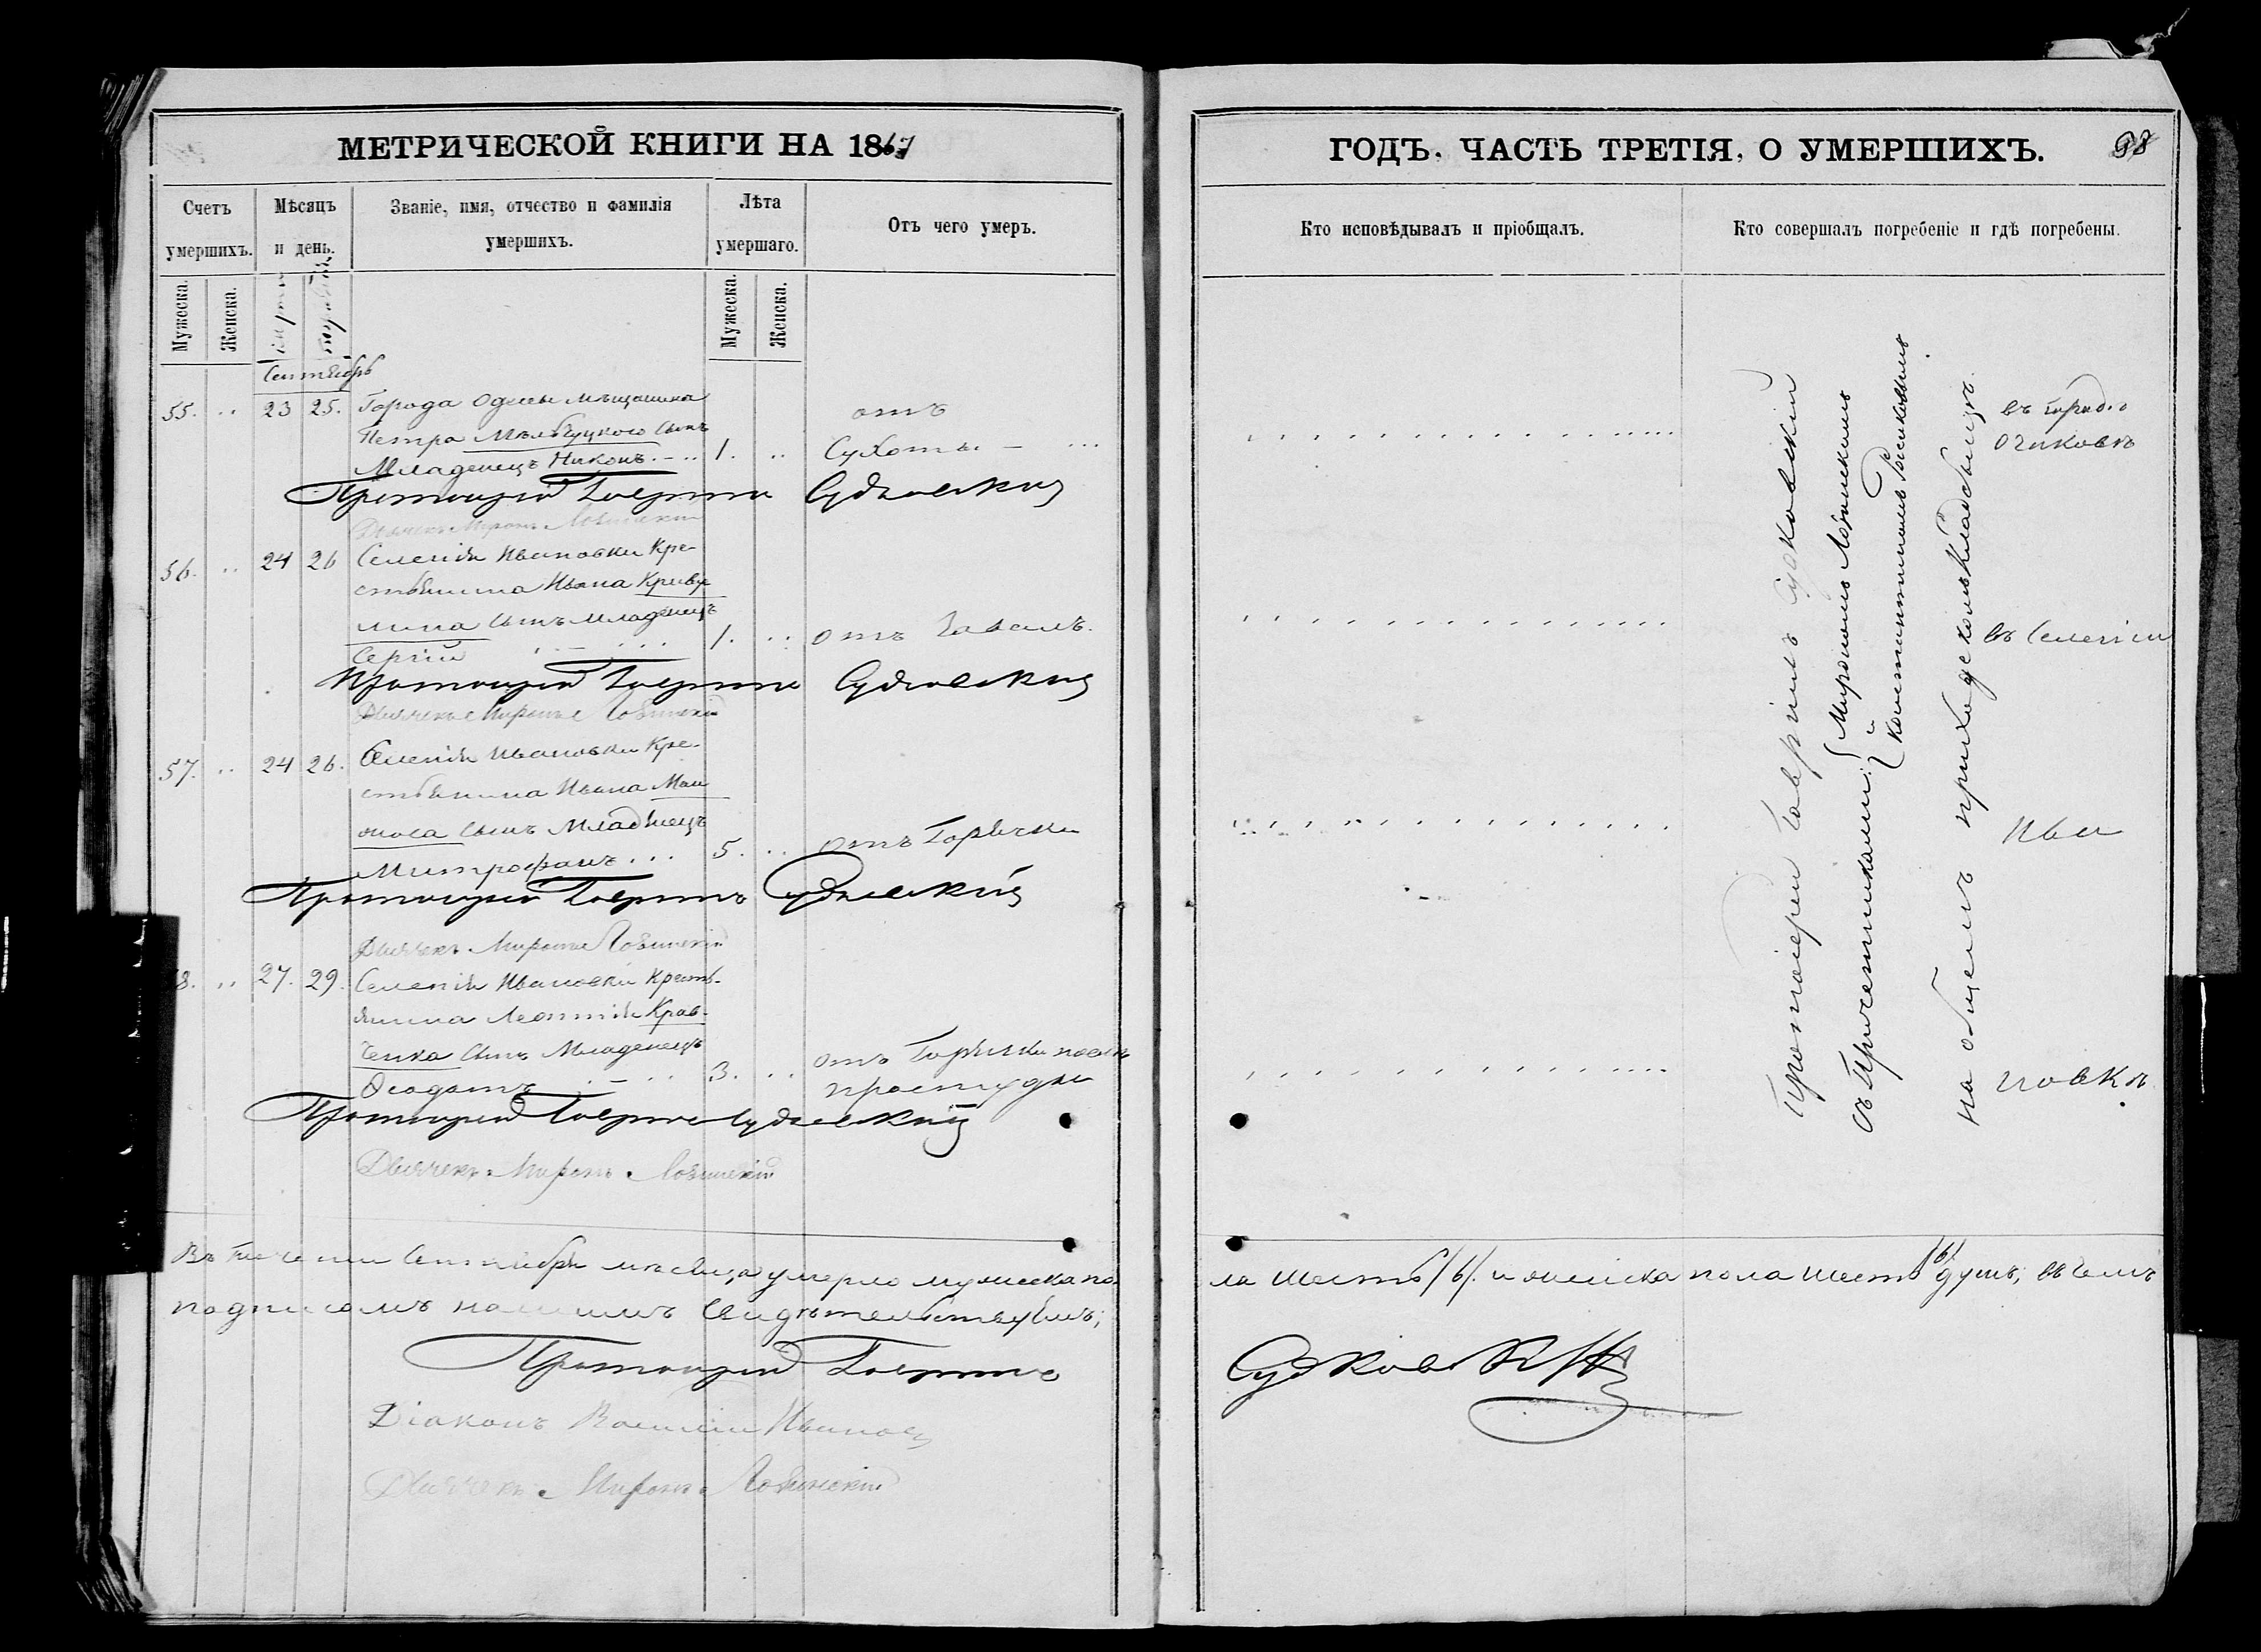 МЕТРИЧЕСКОЙ КНИГИ НА 1867
Счетъ умершихъ.
Мѣсяцъ и день.
Званіе, имя, отчество и фамилія умершихъ.
Лѣта умершаго.
Отъ чего умеръ.
Мужеска.
Женска.
Мужеска.
Женска.
Сентябрь
55. .. 23 25. Города Одессы мѣщанина
Петра
сынъ
Младенецъ Никонъ. 1. ..
отъ
Сухоты.
Протоіерей Гавріилъ Судковскій
Дьячекъ Миронъ Лозинскій
56. .. 24 26 Селенія Ивановки Кре-
стьянина Ивана Криву
лина сынъ младенецъ
Сергій 1. .. отъ Завалъ.
Протоіерей Гавріилъ Судковскій
Дьячекъ Миронъ Лозинскій
57. .. 24 26. Селенія Ивановки Кре-
стьянина Ивана
сынъ Младенецъ
Митрофанъ... 5. .. отъ Горячки
Протоіерей Гавріилъ Судковскій
Дьячекъ Миронъ Лозинскій
8. .. 27. 29. Селенія Ивановки Кресть-
янина Леонтія Крав-
ченка сынъ Младенецъ
Ѳеодотъ 3. .. отъ Горячки послѣ
простуды
Протоіерей Гавріилъ Судковскій
Дьячекъ Миронъ Лозинскій
Въ теченіи Сентября мѣсяца умерло мужеска по
подписомъ нашимъ свидѣтельствуемъ;
Протоіерей Гавріилъ
Діаконъ Василій Ивановъ
Дьячекъ Миронъ Лозинскій
ГОДЪ. ЧАСТЬ ТРЕТІЯ, О УМЕРШИХЪ. 98
Кто исповѣдывалъ и пріобщалъ.
Кто совершалъ погребеніе и гдѣ погребены.
Протоіерей Гавріилъ Судковскій
съ Причетниками: Мирономъ Лозинскимъ
и
Константиномъ
на общемъ приходскомъ кладбищѣ.
въ городѣ
Очаковѣ
въ Селеніи
Ива
новкѣ.
ла шесть /6/. и женска пола шесть /6/ душъ; въ чемъ
Судковскій